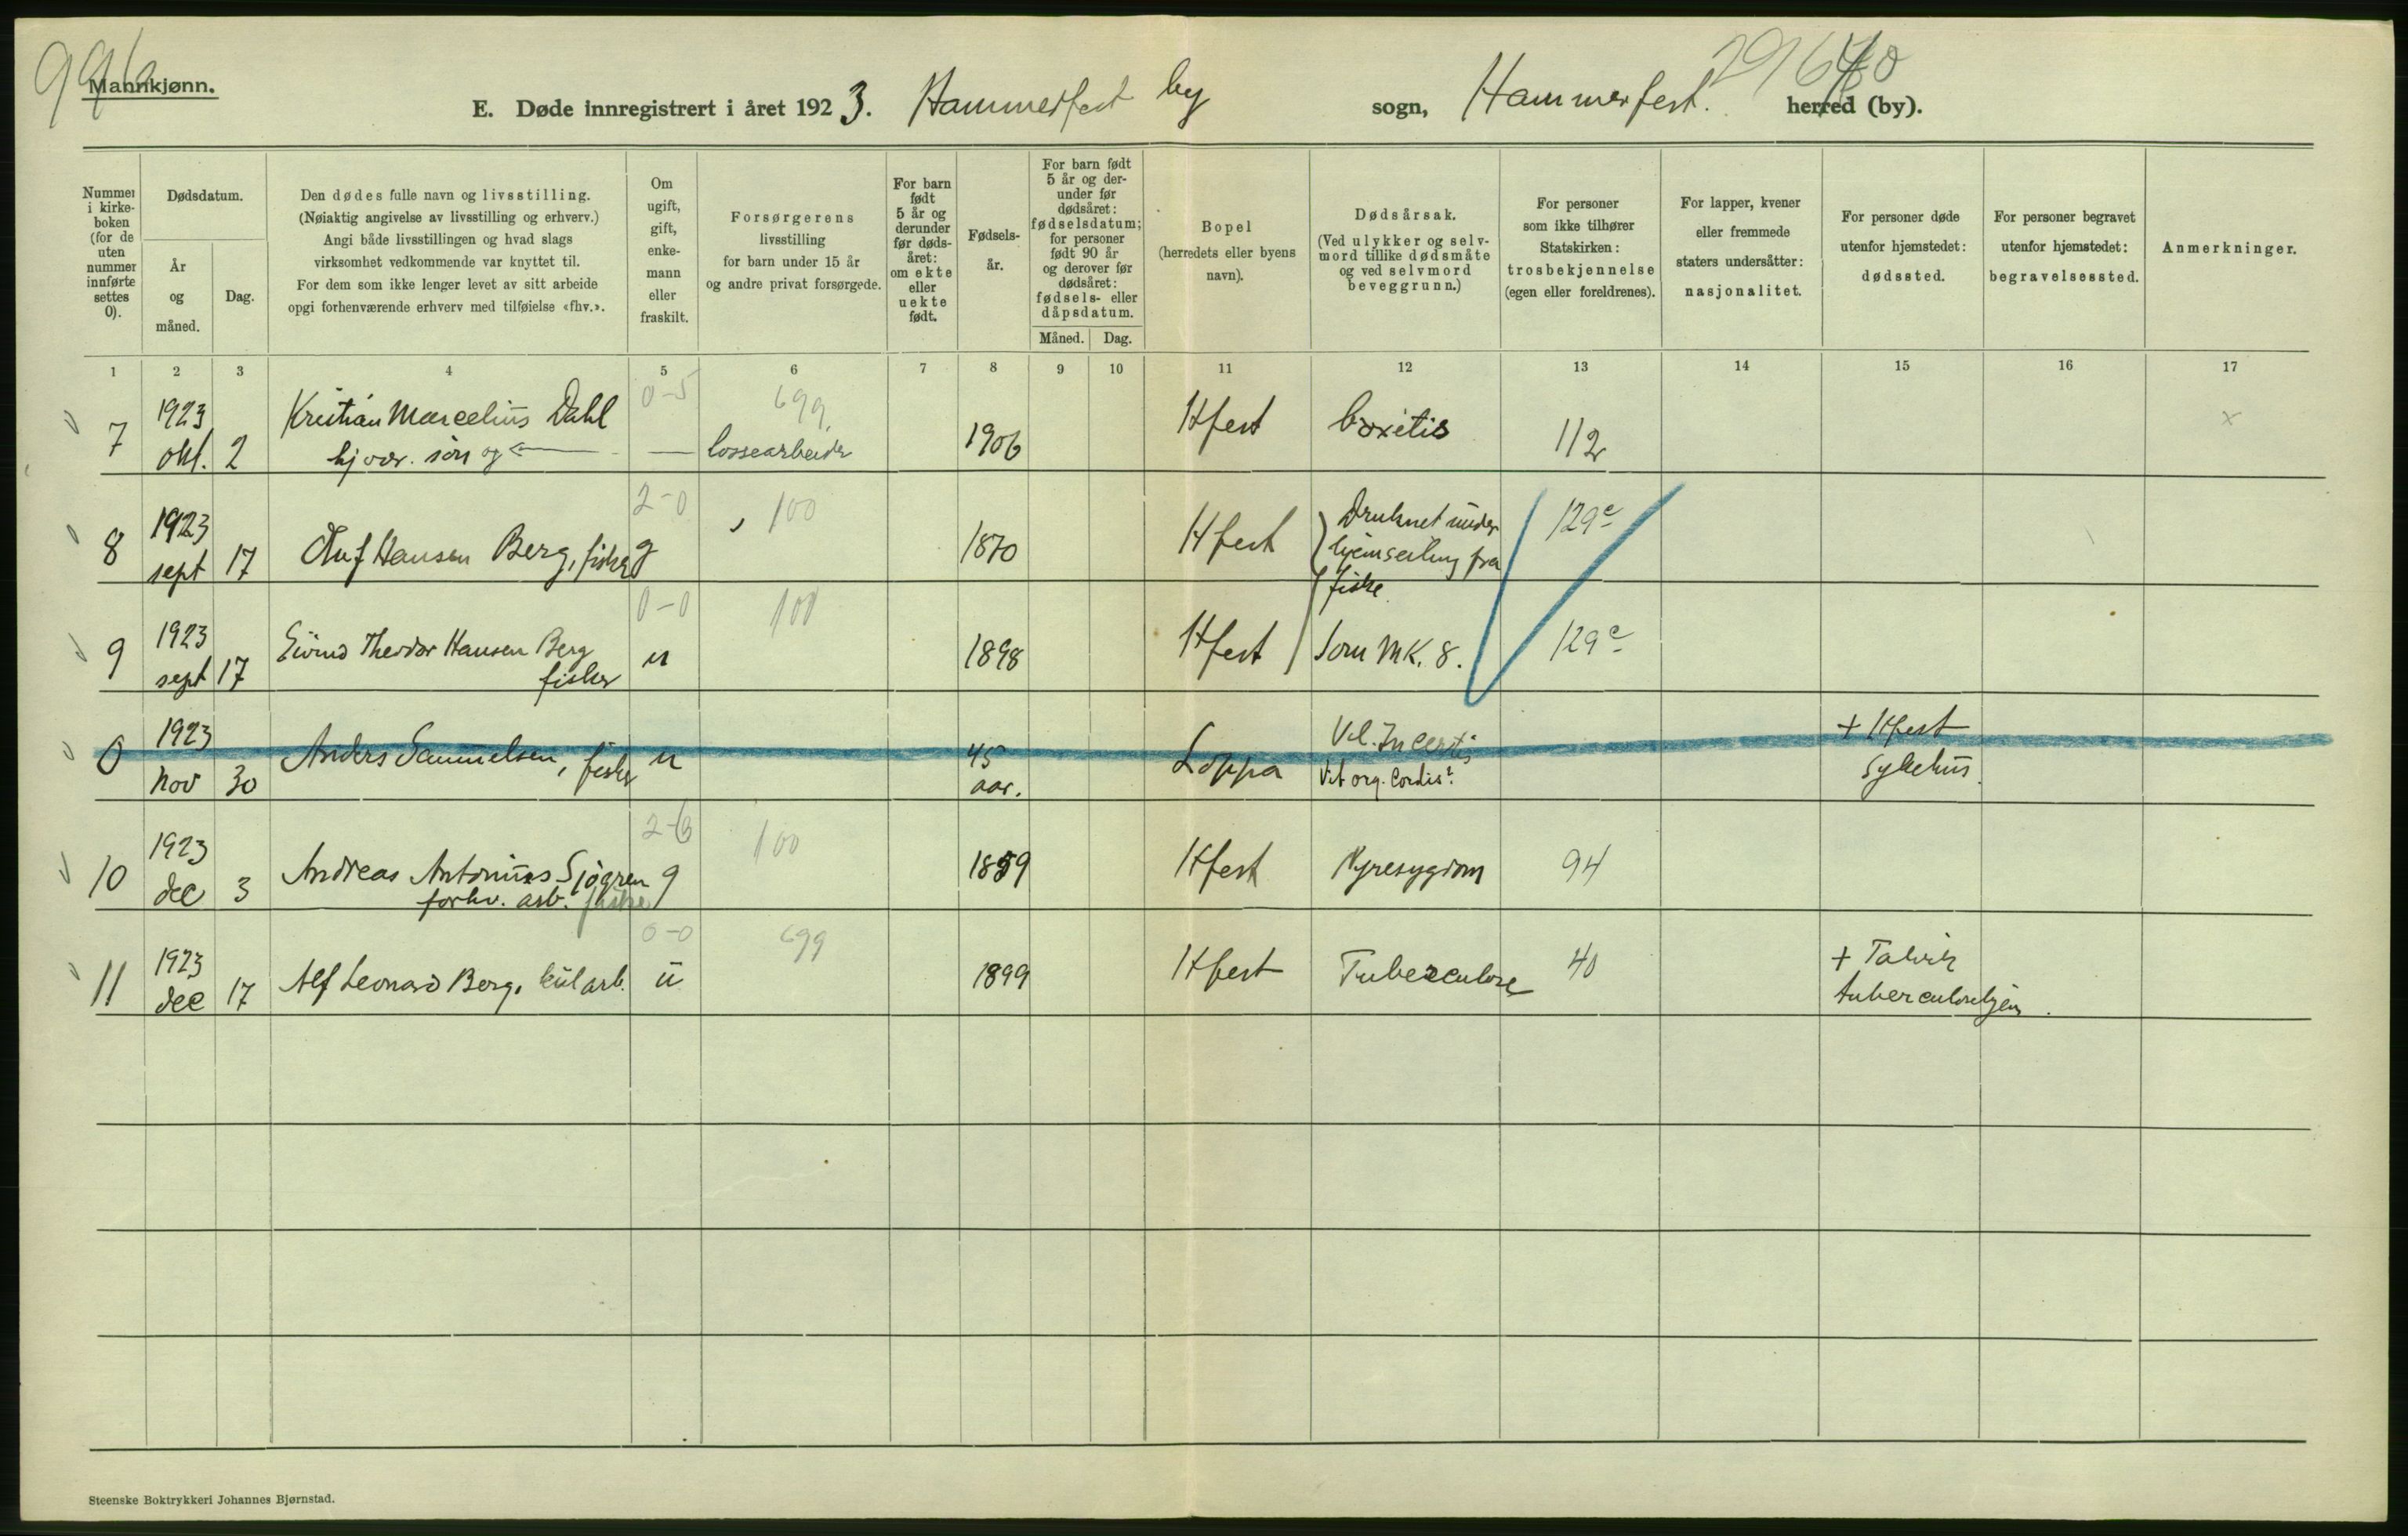 996
Mannkjønn.
E. Døde innregistrert i året 1923. Hammerfest by sogn, Hammerfest. herred (by).
Nummer i kirkeboken (for de uten nummer innførte settes 0).
Dødsdatum.
År og måned.
Dag.
Den dødes fulle navn og livsstilling.
(Nøiaktig angivelse av livsstilling og erhverv.)
Angi både livsstillingen og hvad slags
virksomhet vedkommende var knyttet til.
For dem som ikke lenger levet av sitt arbeide
opgi forhenværende erhverv med tilføielse «fhv.».
Om ugift, gift, enkemann eller fraskilt.
Forsørgerens
livsstilling
for barn under 15 år
og andre privat forsørgede.
For barn født 5 år og derunder før dødsåret: om ekte eller uekte født.
Fødselsår.
For barn født 5 år og derunder før dødsåret: fødselsdatum; for personer født 90 år og derover før dødsåret: fødsels- eller dåpsdatum.
Måned. Dag.
Bopel
(herredets eller byens
navn).
Dødsårsak.
(Ved ulykker og selvmord tillike dødsmåte og ved selvmord beveggrunn.)
For personer
som ikke tilhører
Statskirken:
trosbekjennelse
(egen eller foreldrenes).
For lapper, kvener
eller fremmede
staters undersåtter:
nasjonalitet.
For personer døde
utenfor hjemstedet:
dødssted.
For personer begravet
utenfor hjemstedet:
begravelsessted.
Anmerkninger.
1 2 3 4 5 6 7 8 9 10 11 12 13 14 15 16 17
7 1923 okt. 2 Kristian Marcelius Dahl
hjvær. søn og — 0-5 699 lossearbeider 1906 Hfest Coxitis 112 x
8 1923 sept 17 Oluf Hansen Berg, fisker g 2-0 100 1870 Hfest Druknet under
hjemseiling fra
fiske 129c
9 1923 sept 17 Eivind Theodor Hansen Berg
fisker 0-0 u 100 1898 Hfest Som MK. 8. 129c
0 1923 nov 30 Anders Samuelsen, fisker u 45
aar. Loppa
Vit org. Cordis? + Hfest
sykehus.
10 1923 dec 3 Andreas Antonius Sjögren
forhv. arb. fisker g 100 1859 Hfest Nyresygdom 94
11 1923 dec 17 Alf Leonard Berg, kul arb. 0-0 u 699 1899 Hfest Tuberculose 40 + Talvik
tuberculosehjem.
Steenske Boktrykkeri Johannes Bjørnstad.